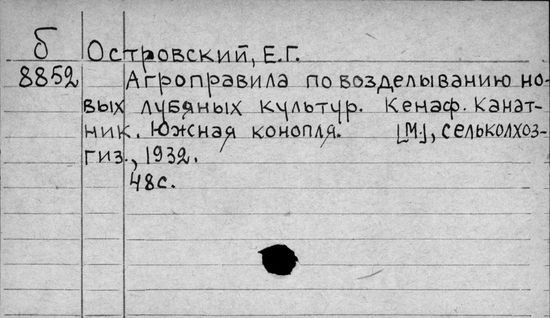 б Островский, Е.Г.
8852 Агроправила по возделыванию но-
вых лубяных культур. Кенаф. Канат-
ник. Южная конопля. [М.], Сельколхоз-
гиз., 1932.
48с.